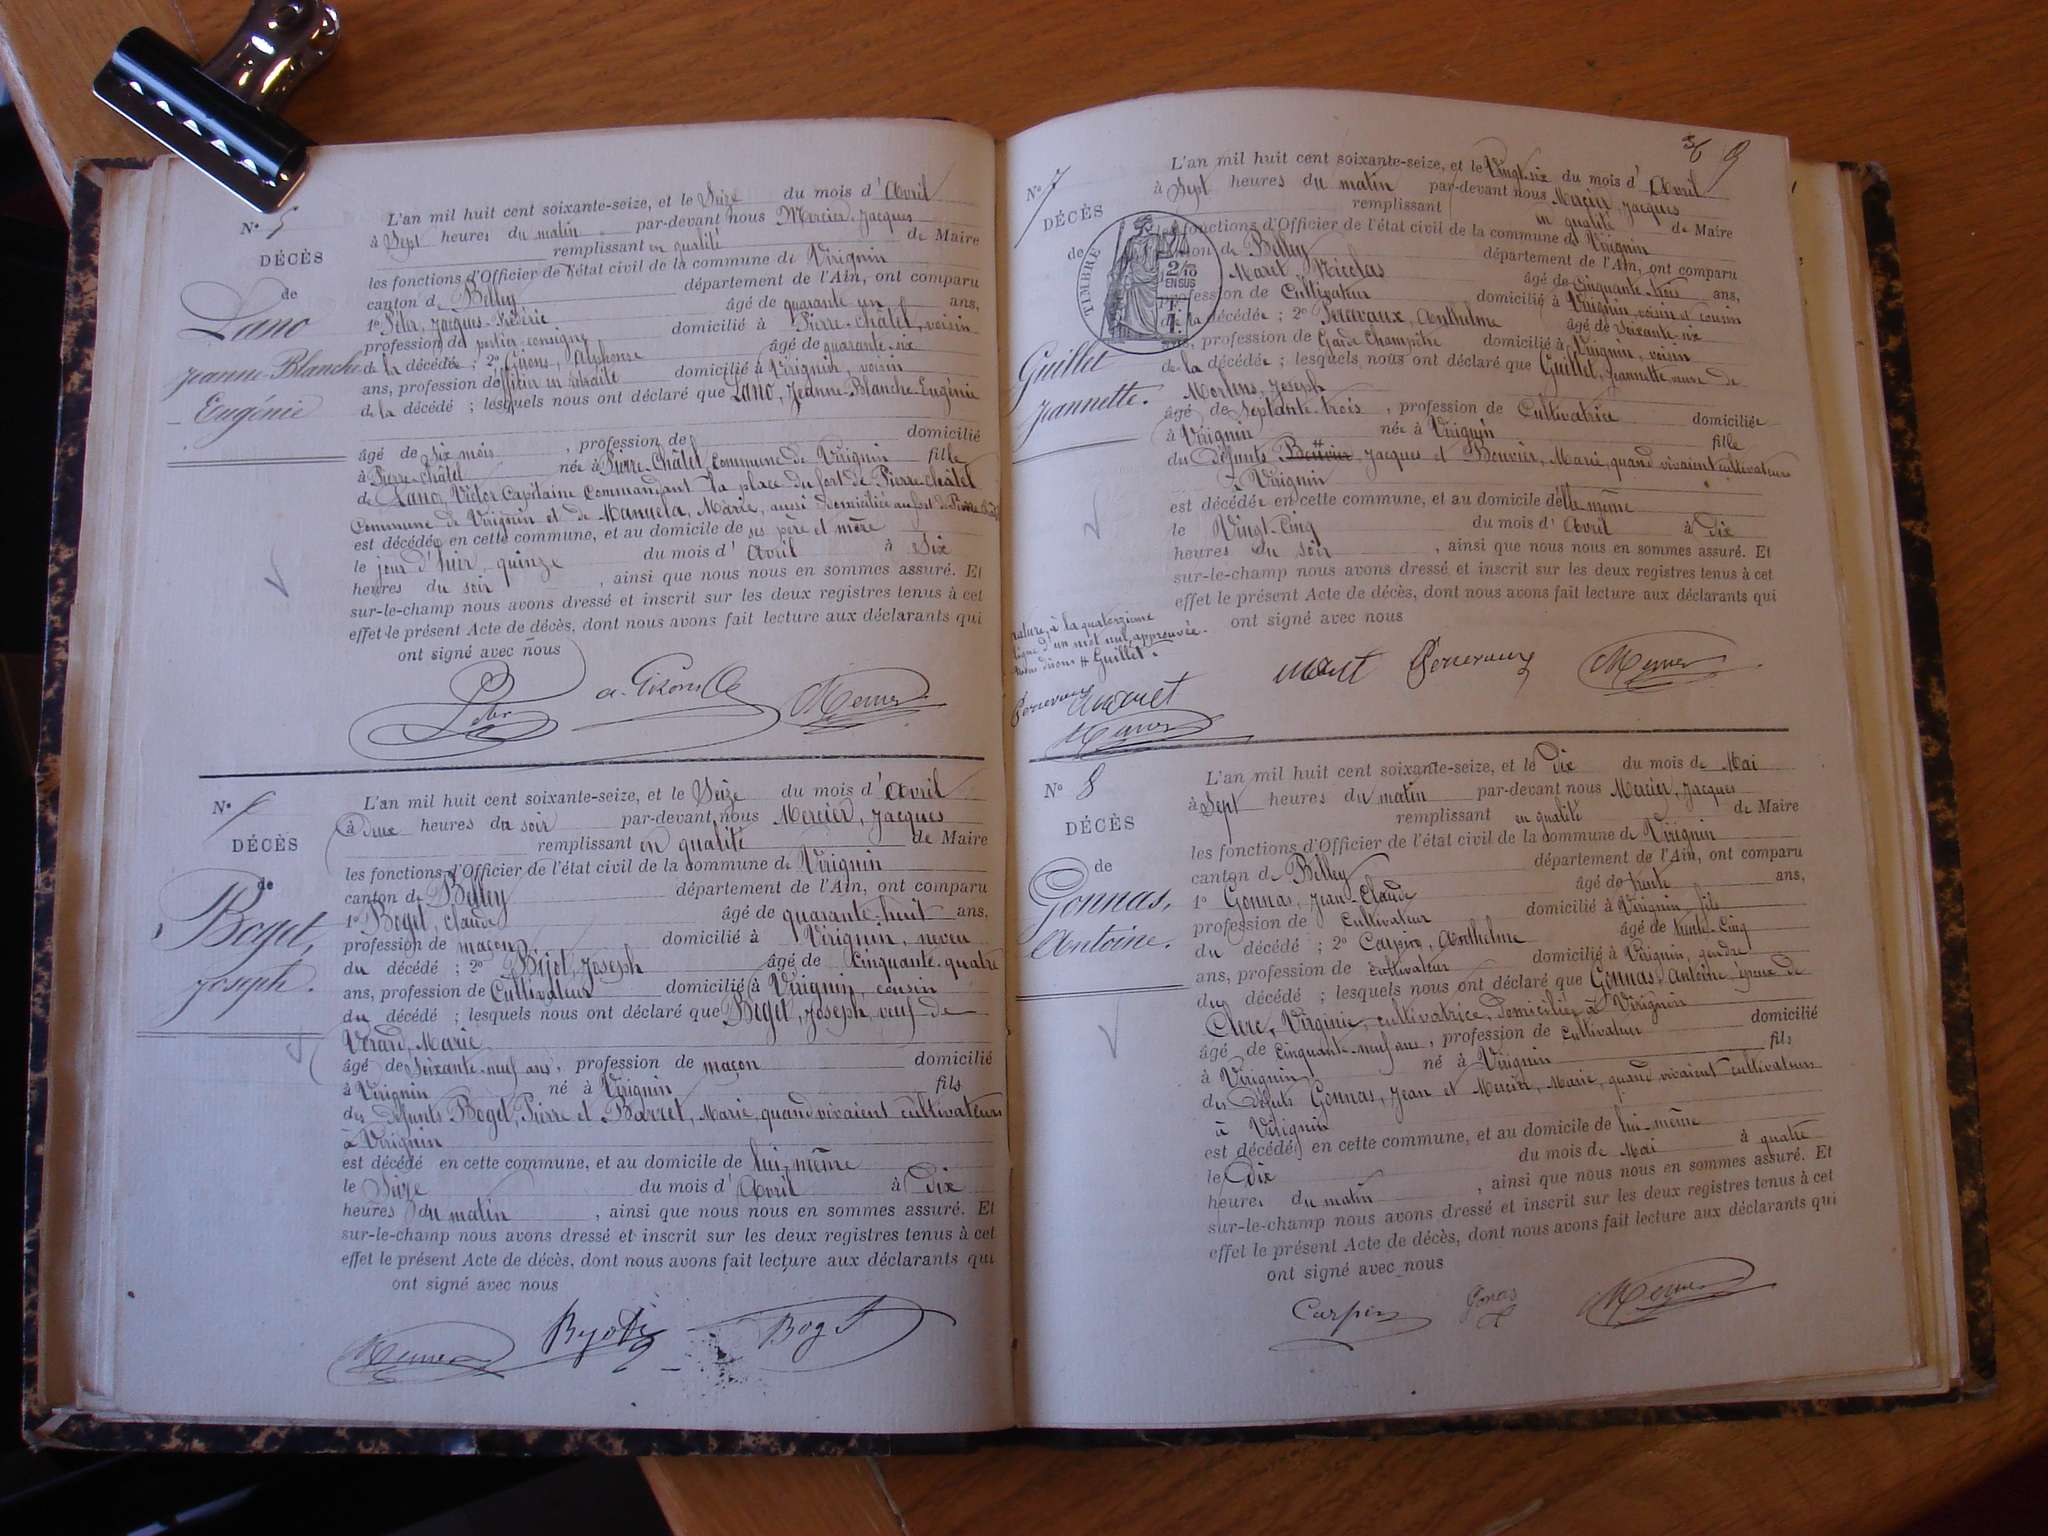 N° 5
DÉCÈS
de
Lano
Jeanne-Blanche
Eugénie
L'an mil huit cent soixante-seize, et le Seize du mois d'Avril
à Sept heures du matin par-devant nous Mercier, Jacques
remplissant en qualité de Maire
les fonctions d'Officier de l'état civil de la commune de Virignin
canton de Belley département de l'Ain, ont comparu
1° Jacques-Frédéric âgé de quarante un ans,
profession de portier-consigne domicilié à Pierre-châtel, voisin
de la décédée ; 2° Alphonse âgé de quarante-six
ans, profession d'officier en retraite domicilié à Virignin, voisin
de la décédé ; lesquels nous ont déclaré que Lano, Jeanne-Blanche-Eugénie
âgé de six mois , profession de domicilié
à Pierre-châtel née à Pierre-Châtel Commune de Virignin fille
de Lano, Victor Capitaine Commandant la place du fort de Pierre-châtel
Commune de Virignin et de Manuela, Marie, aussi domiciliée au fort de Pierre
est décédée en cette commune, et au domicile de ses père et mère
le jour d'hier, quinze du mois d'Avril à Six
heures du soir , ainsi que nous nous en sommes assuré. Et
sur-le-champ nous avons dressé et inscrit sur les deux registres tenus à cet
effet le présent Acte de décès, dont nous avons fait lecture aux déclarants qui
ont signé avec nous
Mercier
N° 6
DÉCÈS
de
Boget,
Joseph.
L'an mil huit cent soixante-seize, et le Seize du mois d'Avril
à deux heures du soir par-devant nous Mercier, Jacques
remplissant en qualité de Maire
les fonctions d'Officier de l'état civil de la commune de Virignin
canton de Belley département de l'Ain, ont comparu
1° Boget, Claude âgé de quarante-huit ans,
profession de maçon domicilié à Virignin, neveu
du décédé ; 2° Bijot, Joseph âgé de Cinquante-quatre
ans, profession de Cultivateur domicilié à Virignin, cousin
du décédé ; lesquels nous ont déclaré que Boget, Joseph, veuf de
Vérard, Marie
âgé de Soixante-neuf ans, profession de maçon domicilié
à Virignin né à Virignin fils
des défunts Boget, Pierre et Barret, Marie, quand vivaient cultivateurs
à Virignin
est décédé en cette commune, et au domicile de lui-même
le Seize du mois d'Avril à Dix
heures du matin , ainsi que nous nous en sommes assuré. Et
sur-le-champ nous avons dressé et inscrit sur les deux registres tenus à cet
effet le présent Acte de décès, dont nous avons fait lecture aux déclarants qui
ont signé avec nous
Mercier Boget
36 9
N° 7
DÉCÈS
de
TIMBRE
2/10
EN SUS
Guillet
Jeannette.
L'an mil huit cent soixante-seize, et le Vingt-six du mois d'Avril
à Sept heures du matin par-devant nous Mercier, Jacques
remplissant en qualité de Maire
les fonctions d'Officier de l'état civil de la commune de Virignin
canton de Belley département de l'Ain, ont comparu
Maret Nicolas âgé de Cinquante-trois ans,
profession de Cultivateur domicilié à Virignin, voisin et cousin
de la décédée ; 2° Anthelme âgé de Soixante-six
ans, profession de Garde Champêtre domicilié à Virignin, voisin
de la décédée ; lesquels nous ont déclaré que Guillet, Jeannette, veuve de
Joseph
âgé de Septante-trois , profession de Cultivatrice domiciliée
à Virignin née à Virignin fille
des défunts Bouvier, Jacques et Bouvier, Marie, quand vivaient cultivateurs
à Virignin
est décédée en cette commune, et au domicile d'elle même
le Vingt-Cinq du mois d'Avril à Dix
heures du soir , ainsi que nous nous en sommes assuré. Et
sur-le-champ nous avons dressé et inscrit sur les deux registres tenus à cet
effet le présent Acte de décès, dont nous avons fait lecture aux déclarants qui
ont signé avec nous
rature, à la quatorzième
ligne d'un mot nul, approuvée.
nous disons # Guillet.
Maret Mercier
Mercier
N° 8
DÉCÈS
de
Gonnas,
Antoine.
L'an mil huit cent soixante-seize, et le Dix du mois de Mai
à Sept heures du matin par-devant nous Mercier, Jacques
remplissant en qualité de Maire
les fonctions d'Officier de l'état civil de la commune de Virignin
canton de Belley département de l'Ain, ont comparu
1° Gonnas, Jean-Claude âgé de trente ans,
profession de Cultivateur domicilié à Virignin, fils
du décédé ; 2° Carpin, Anthelme âgé de trente-Cinq
ans, profession de Cultivateur domicilié à Virignin, gendre
du décédé ; lesquels nous ont déclaré que Gonnas, Antoine, époux de
Clerc, Virginie, cultivatrice, domiciliée à Virignin
âgé de Cinquante-neuf ans, profession de Cultivateur domicilié
à Virignin né à Virignin fils
des défunts Gonnas, Jean et Mercier, Marie, quand vivaient cultivateurs
à Virignin
est décédé en cette commune, et au domicile de lui-même
le Dix du mois de Mai à quatre
heures du matin , ainsi que nous nous en sommes assuré. Et
sur-le-champ nous avons dressé et inscrit sur les deux registres tenus à cet
effet le présent Acte de décès, dont nous avons fait lecture aux déclarants qui
ont signé avec nous
Carpin Gonas Mercier